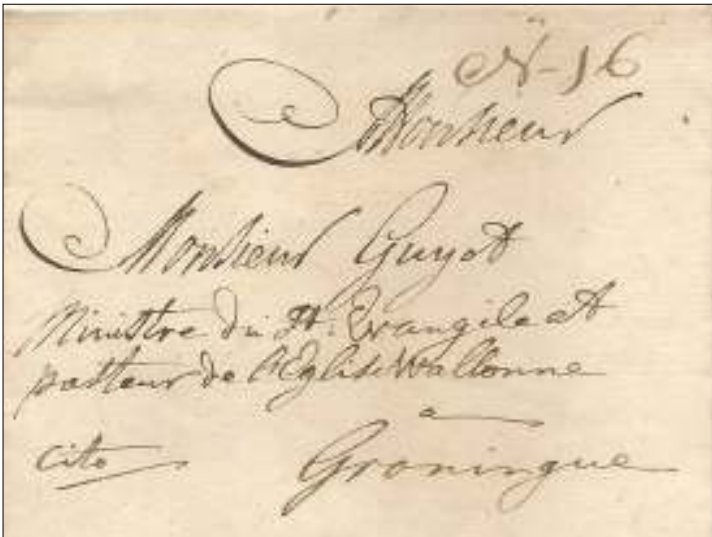 N-16
Monsieur
Monsieur Guyot
Ministre du St. Evangile et
pasteur de l'Eglise Wallonne
a
cito Groningue